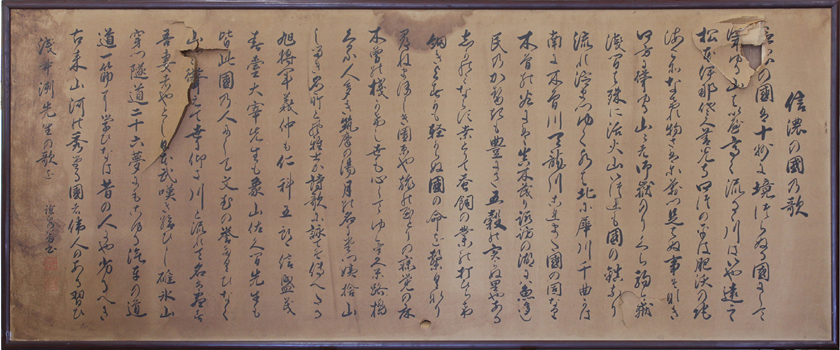 信濃の國乃歌
の國は十州に境つらぬる國にして
聳ゆる山はいや高く流るゝ川はいや遠し
松本伊那佐久善光寺四つの平は肥沃の地
海こそなけれ物さわに萬足らぬ事そなき
四方に聳ゆる山々は御嶽乗くら駒ヶ嶽
浅間は殊に活火山いつれも國の鎮なり
流れ淀まつゆく水は北に犀川千曲川
南に木曽川天龍川これまた國の固なり
木曽の谷には真木茂り諏訪の湖には魚多し
民のかせきも豊にて五穀の實らぬ里やある
しかのみならす桑とりて蚕飼の業の打ちひらけ
細きよすかも軽からぬ國の命を繋くなり
尋ねまほしき園原や旅のやとりの寝覚の床
木曽の桟かけし世も心してゆけ久米路橋
くる人多き筑摩の湯月の名にたつ姨捨山
しるき名所と風雅士か詩歌に詠てそ傳へたる
旭将軍義仲も仁科五郎信盛も
春臺太宰先生も象山佐久間先生も
皆此國の人にして文武の誉たくひなく
山と聳えて世に仰き川と流れて名は尽す
吾妻はやとし日本武嘆き給ひし碓氷山
穿つ隧道二十六夢にもこゆる汽車の道
道一筋に学ひなは昔の人にや劣るへき
古来山河の秀てたる國は偉人のある習ひ
浅井洌先生の歌を 書